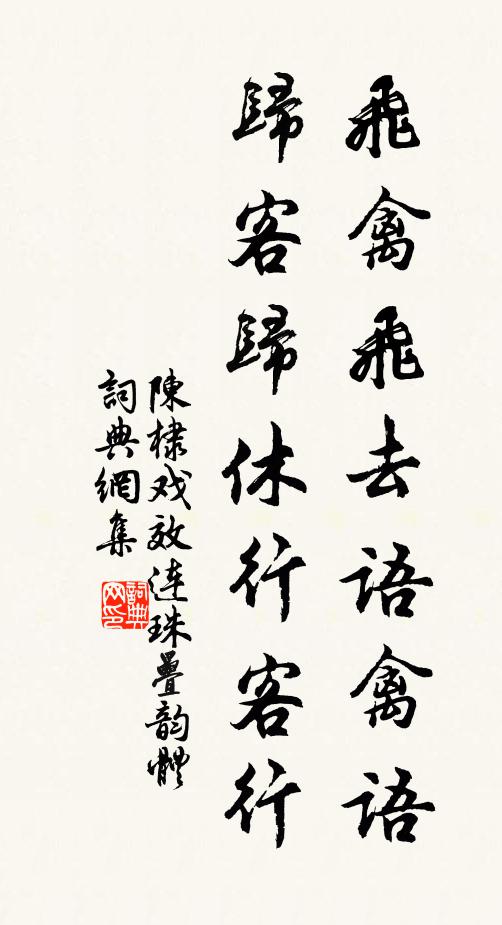 飛禽飛去語禽語
歸客歸休行客行
陳棣戏效连珠疊韵體
詞典網集
詞典网印